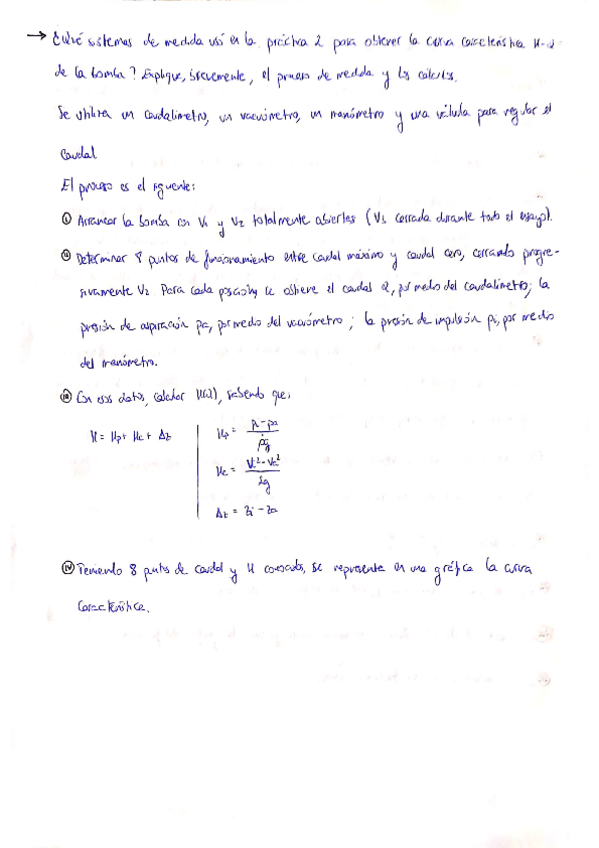 → ¿Qué sistemas de medida usó en la práctica 2 para obtener la curva característica H-Q
de la bomba? Explique, brevemente, el proceso de medida y los cálculos.
Se utiliza un caudalímetro, un vacuómetro, un manómetro y una válvula para regular el
caudal
El proceso es el siguiente:
I Arrancar la bomba con V1 y V2 totalmente abiertas (V3 cerrada durante todo el ensayo).
II Determinar 8 puntos de funcionamiento entre caudal máximo y caudal cero, cerrando progre-
sivamente V2. Para cada posición se obtiene el caudal Q, por medio del caudalímetro; la
presión de aspiración pa, por medio del vacuómetro; la presión de impulsión pi, por medio
del manómetro.
III Con esos datos, calcular H(Q), sabiendo que:
H = Hp + Hc + Δz
Hp = pi - pa / ρg
Hc = Vi² - Va² / 2g
Δz = zi - za
IV Teniendo 8 puntos de caudal y H conocidos, se representa en una gráfica la curva
característica.